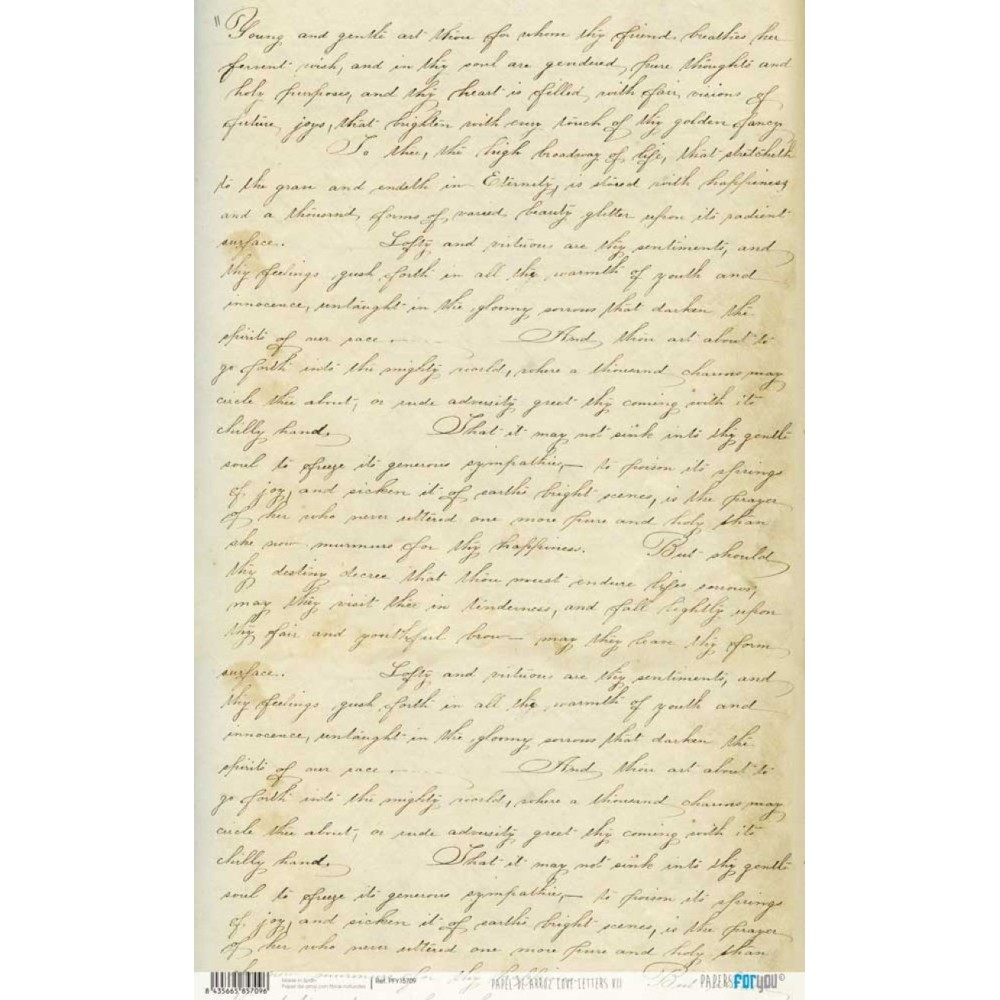 "Young and gentle art thou for whom thy friend breathes her
fervent wish, and in thy soul are gendered pure thoughts and
holy purposes, and thy heart is filled with fair visions of
future joys, that brighten with every touch of thy golden fancy
To thee, the high broadway of life, that stretcheth
to the grave and endeth in Eternity, is stored with happiness
and a thousand forms of varied beauty glitter upon its radient
surface. Lofty and virtuous are thy sentiments, and
thy feelings gush forth in all the warmth of youth and
innocence, untaught in the gloomy sorrows that darken the
spirits of our race. And thou art about to
go forth into the mighty world, where a thousand charms may
circle thee about, or rude adversity greet thy coming with its
chilly hand. That it may not sink into thy gentle
soul to freeze its generous sympathies — to poison its springs
of joy, and sicken it of earth's bright scenes, is the prayer
of her who never uttered one more pure and holy than
she now murmurs for thy happiness. But should
thy destiny decree that thou must endure life's sorrows,
may they visit thee in tenderness, and fall lightly upon
thy fair and youthful brow — may they lean thy form
surface. Lofty and virtuous are thy sentiments, and
thy feelings gush forth in all the warmth of youth and
innocence, untaught in the gloomy sorrows that darken the
spirits of our race. And thou art about to
go forth into the mighty world, where a thousand charms may
circle thee about, or rude adversity greet thy coming with its
chilly hand. That it may not sink into thy gentle
soul to freeze its generous sympathies — to poison its springs
of joy, and sicken it of earth's bright scenes, is the prayer
of her who never uttered one more pure and holy than
she now murmurs for thy happiness. But
8 435665 857096
Made in Spain
Papel de arroz con fibras naturales
Ref. PFY15709
PAPEL DE ARROZ LOVE LETTERS VII
PAPERSFORyou©